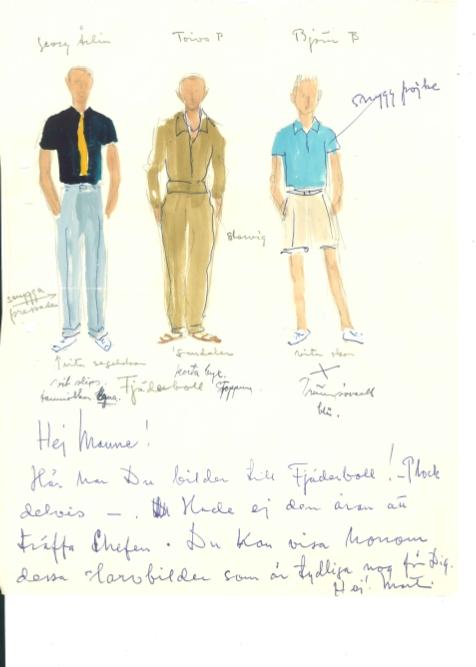 Georg Årlin
Toivo P
Björn B
snygg pojke
snygga
pressade
vit slips
Sandaler
korta byx.
Fjäderboll
vita skor
X
blå.
Hej Manne!
Här har Du bilder till Fjäderboll! – Plock
delvis –. Hade ej den äran att
träffa Chefen. Du kan visa honom
dessa bilder som är tydliga nog för Dig.
Hej!